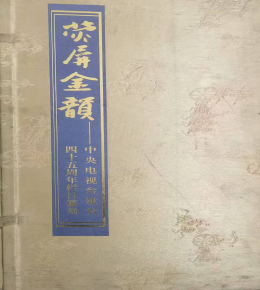 荧屏金韻
——中央电视台
四十五周年